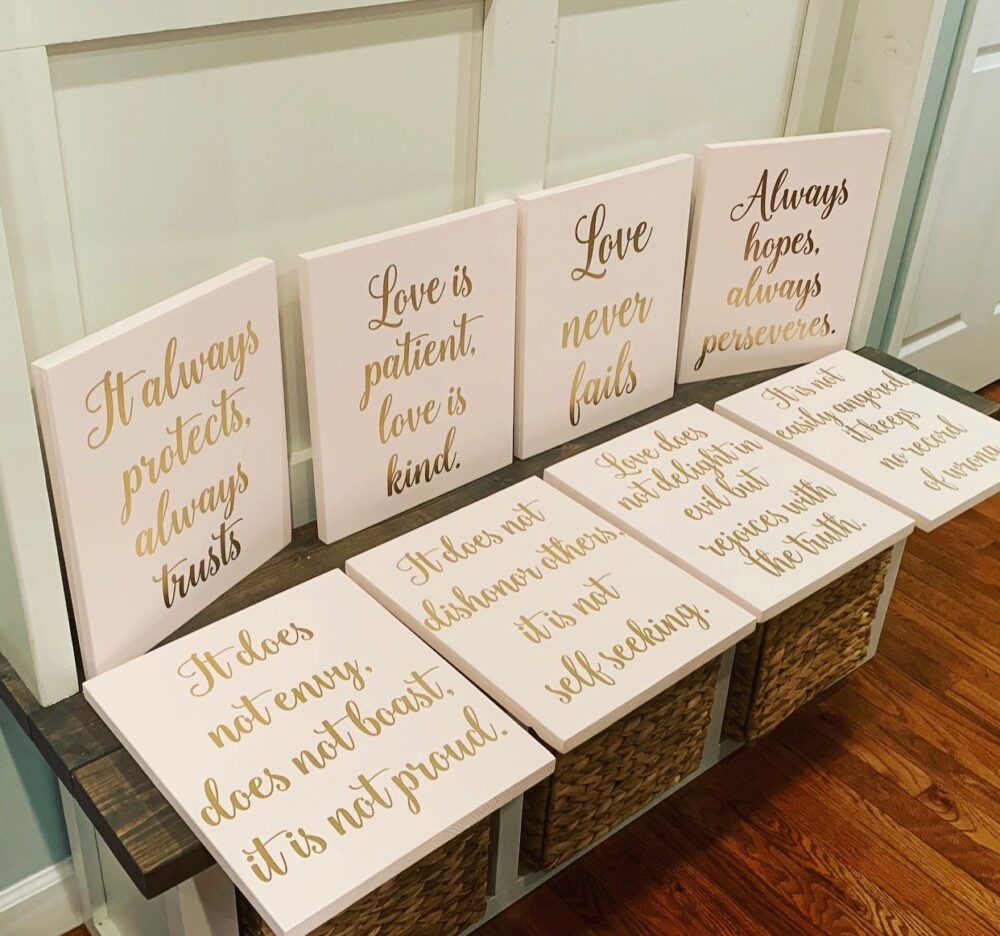 It always
protects,
always
trusts
Love is
patient,
love is
kind.
Love
never
fails
Always
hopes,
always
perseveres.
It does
not envy,
does not boast,
it is not proud.
It does not
dishonor others,
it is not
self seeking.
Love does
not delight in
evil but
rejoices with
the truth.
It is not
easily angered,
it keeps
no record
of wrong